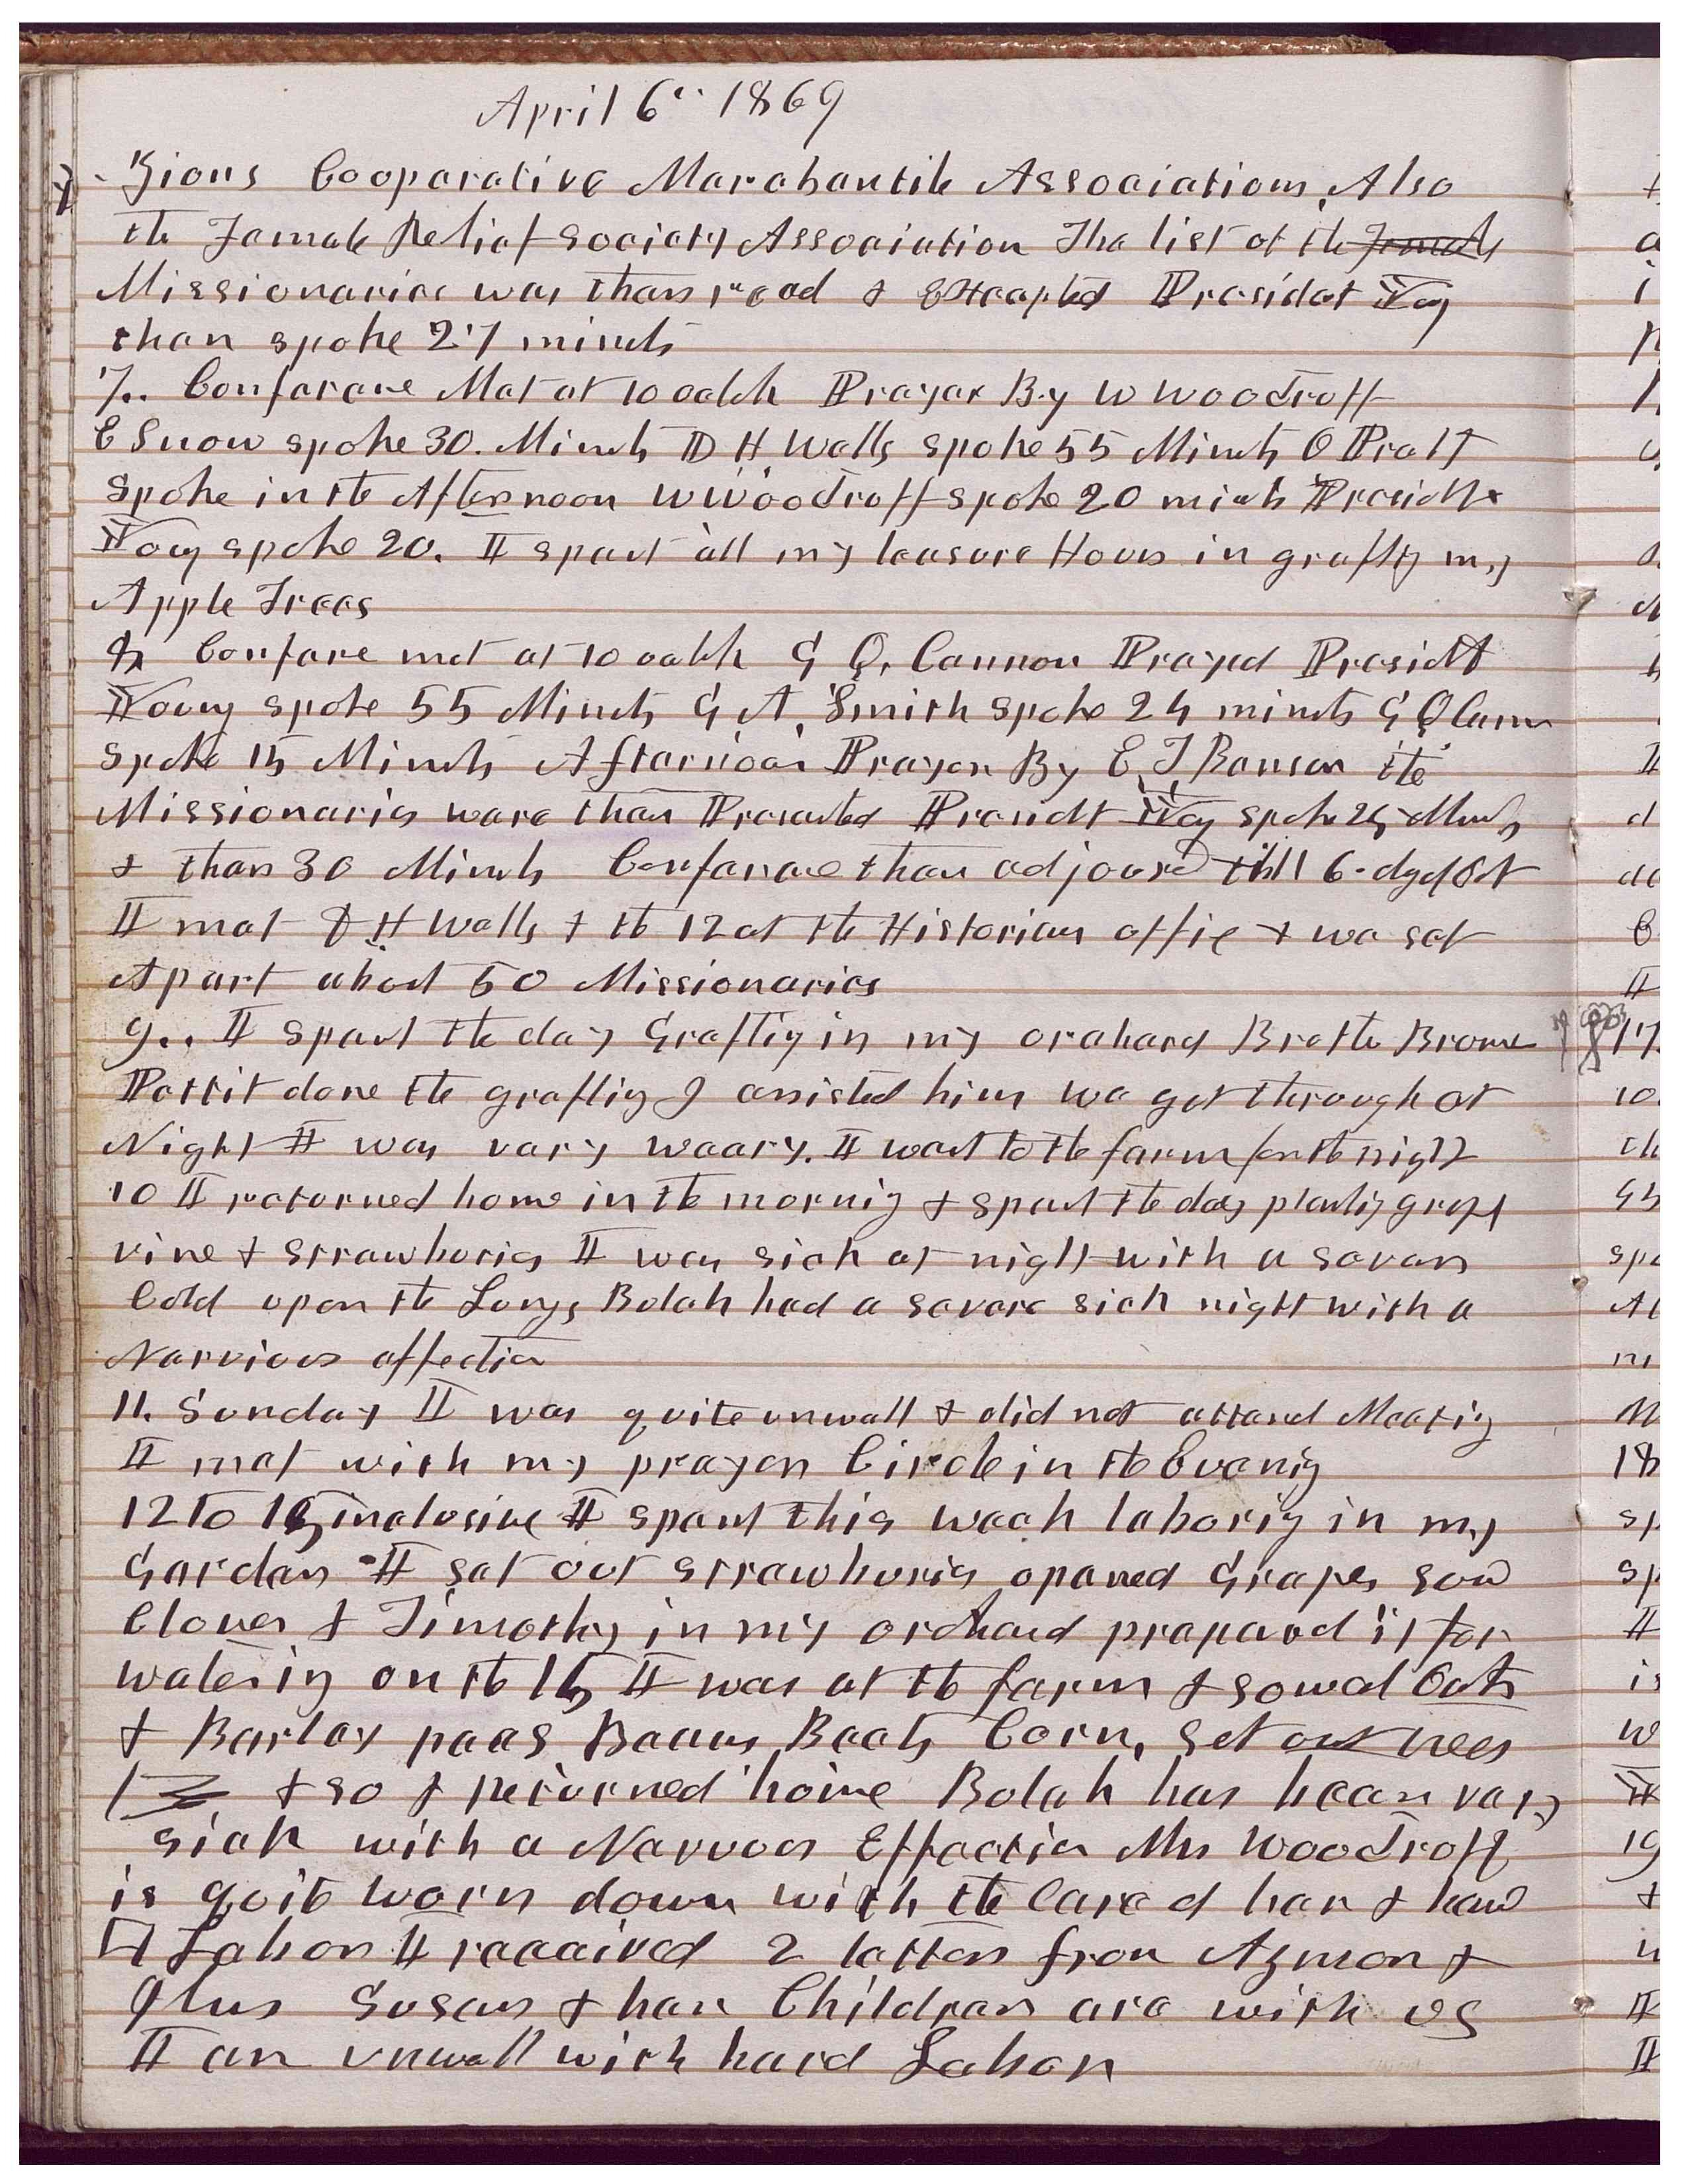 April 6th 1869
Zions Cooperative Marchantile Association, Also
the Female Relief Society Association The list of the Female
Missionaries was then read & Excepted Presidet Young
then spoke 27 minuts
7.. Conferance Met at 10 oclok Prayer By W Woodruff
E Snow spoke 30. Minuts D H Wells spoke 55 Minuts O Pratt
Spoke in the Afternoon W Woodruff spoke 20 minuts Presidt
Young spoke 20. I spent all my leasure Hours in graftg my
Apple Trees
8 Confere met at 10 oclok G Q, Cannon Prayed Presidt
Young spoke 55 Minuts G A, Smith spoke 24 minuts G Q Cann
Spoke 15 Minuts Afternoon Prayer By E, T, Benson the
Missionaries ware then Presented Presidt Young spoke 25 Minuts
& then 30 Minuts Conferance then adjourd till 6. dy of Oct
I met D H Wells & the 12 at the Historians offic & we set
Apart about 50 Missionaries
9.. I spent the day Grafting in my orchard Brothe Brome
Pettit done the grafting I assisted him we got through at
Night I was very weary. I went to the farm for the night
10 I returned home in the morning & spent the day planting grape
vine & strawburies I was sick at night with a severe
Cold upon the Lungs Bulah had a severe sick night with a
Nervious affection
11. Sunday I was quite unwell & did not attend Meeting
I met with my prayer Circle in the Evening
12 to 16, inclusive I spent this week laboring in my
Garden I set out strawburies opened Grapes sowd
Clover & Timothy in my orchard prepared it for
watering on the 15 I was at the farm & sowed Oats
& Barley peas Beans Beets Corn, set out trees
& so & returned home Bulah has been very
sick with a Nervous Effection Mrs Woodruff
is quite worn down with the Care of her & hard
Labor I received 2 letters from Azmon &
Ilus Susan & her Children are with us
I am unwell with hard Labor